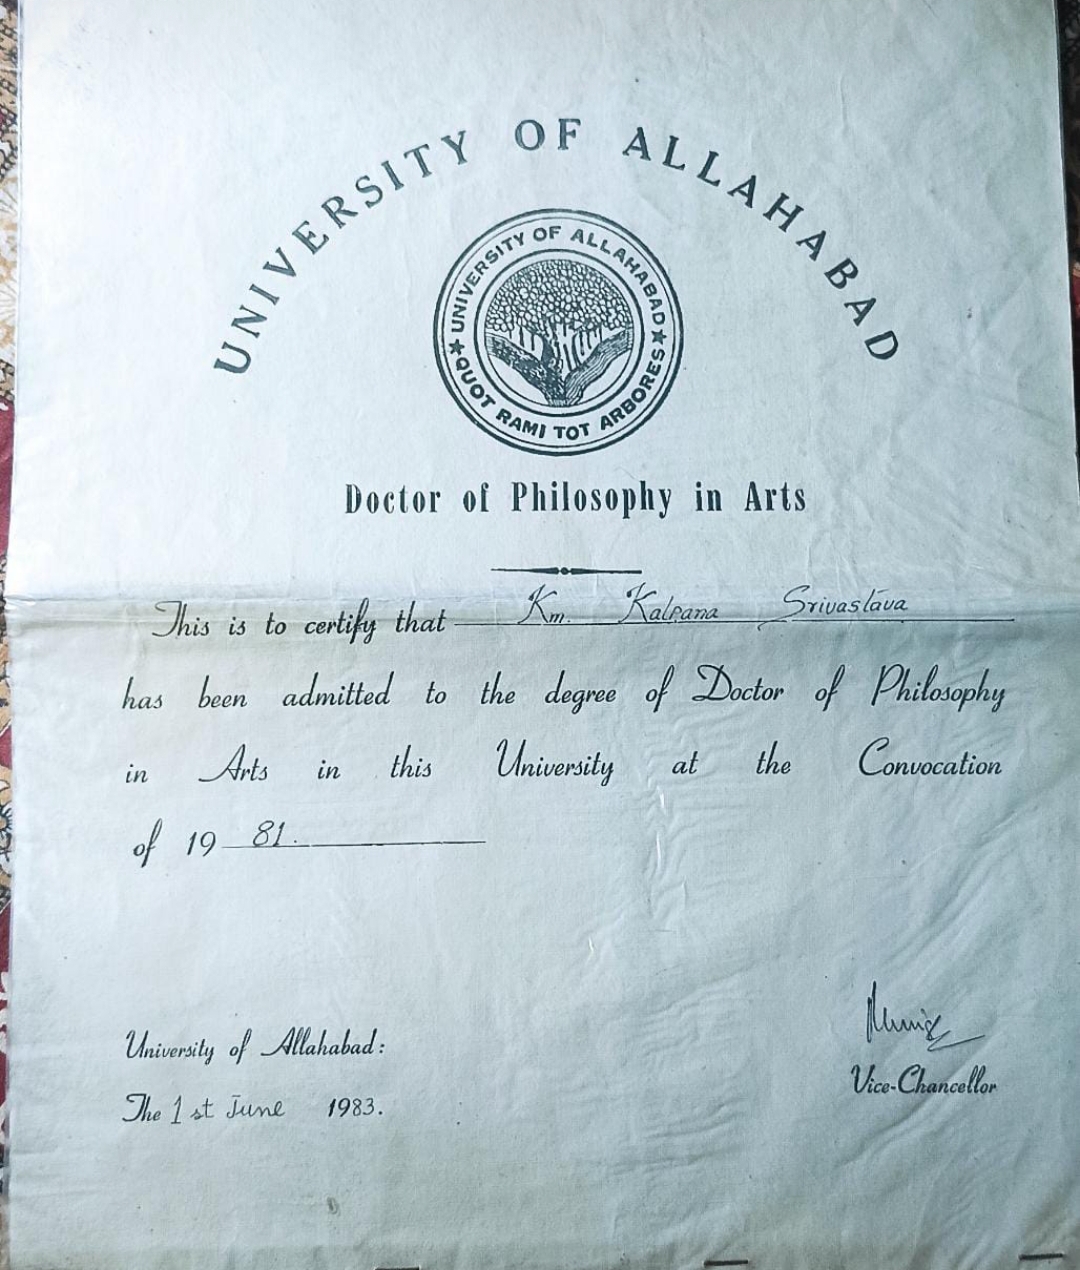 UNIVERSITY OF ALLAHABAD
UNIVERSITY OF ALLAHABAD
QUOT RAMI TOT ARBORES
Doctor of Philosophy in Arts
This is to certify that Km. Kalpana Srivastava
has been admitted to the degree of Doctor of Philosophy
in Arts in this University at the Convocation
of 19 81.
University of Allahabad:
The 1st June 1983.
Vice-Chancellor